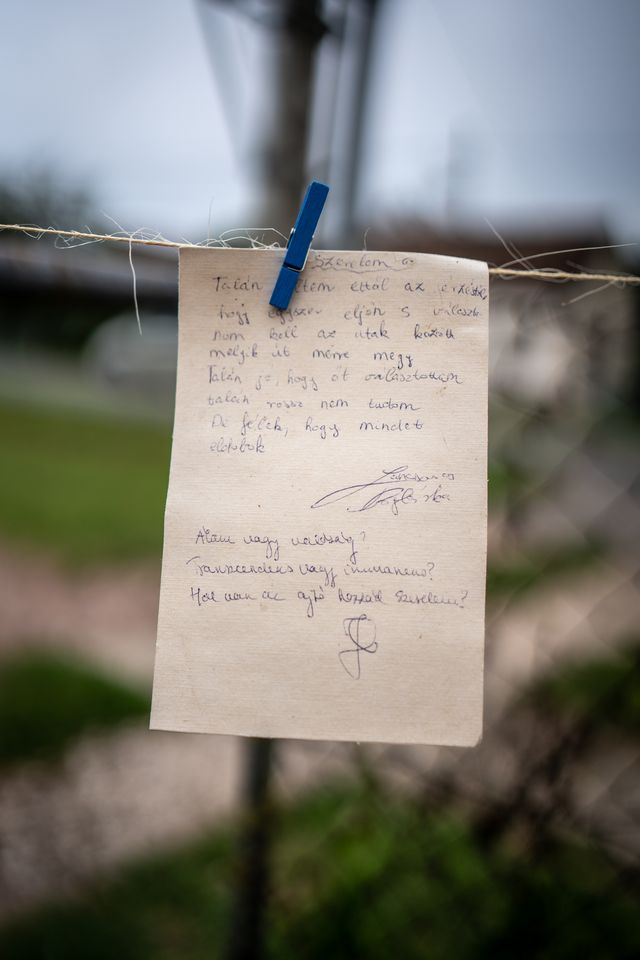 Szerelem
Talán ettől az érzéstől
hogy egyszer eljön s választ
nem kell az utak között
melyik út merre megy
Talán jó, hogy őt választottam
talán rossz nem tudom
De félek, hogy mindet
eldobok
Álom vagy valóság?
Transzcendens vagy immanens?
Hol van az ajtó hozzád Szerelem?